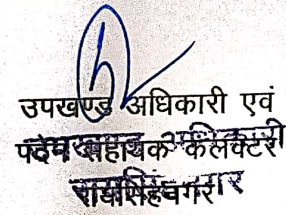 उपखण्ड अधिकारी एवं
पदेन सहायक कलेक्टर
रायसिंहनगर